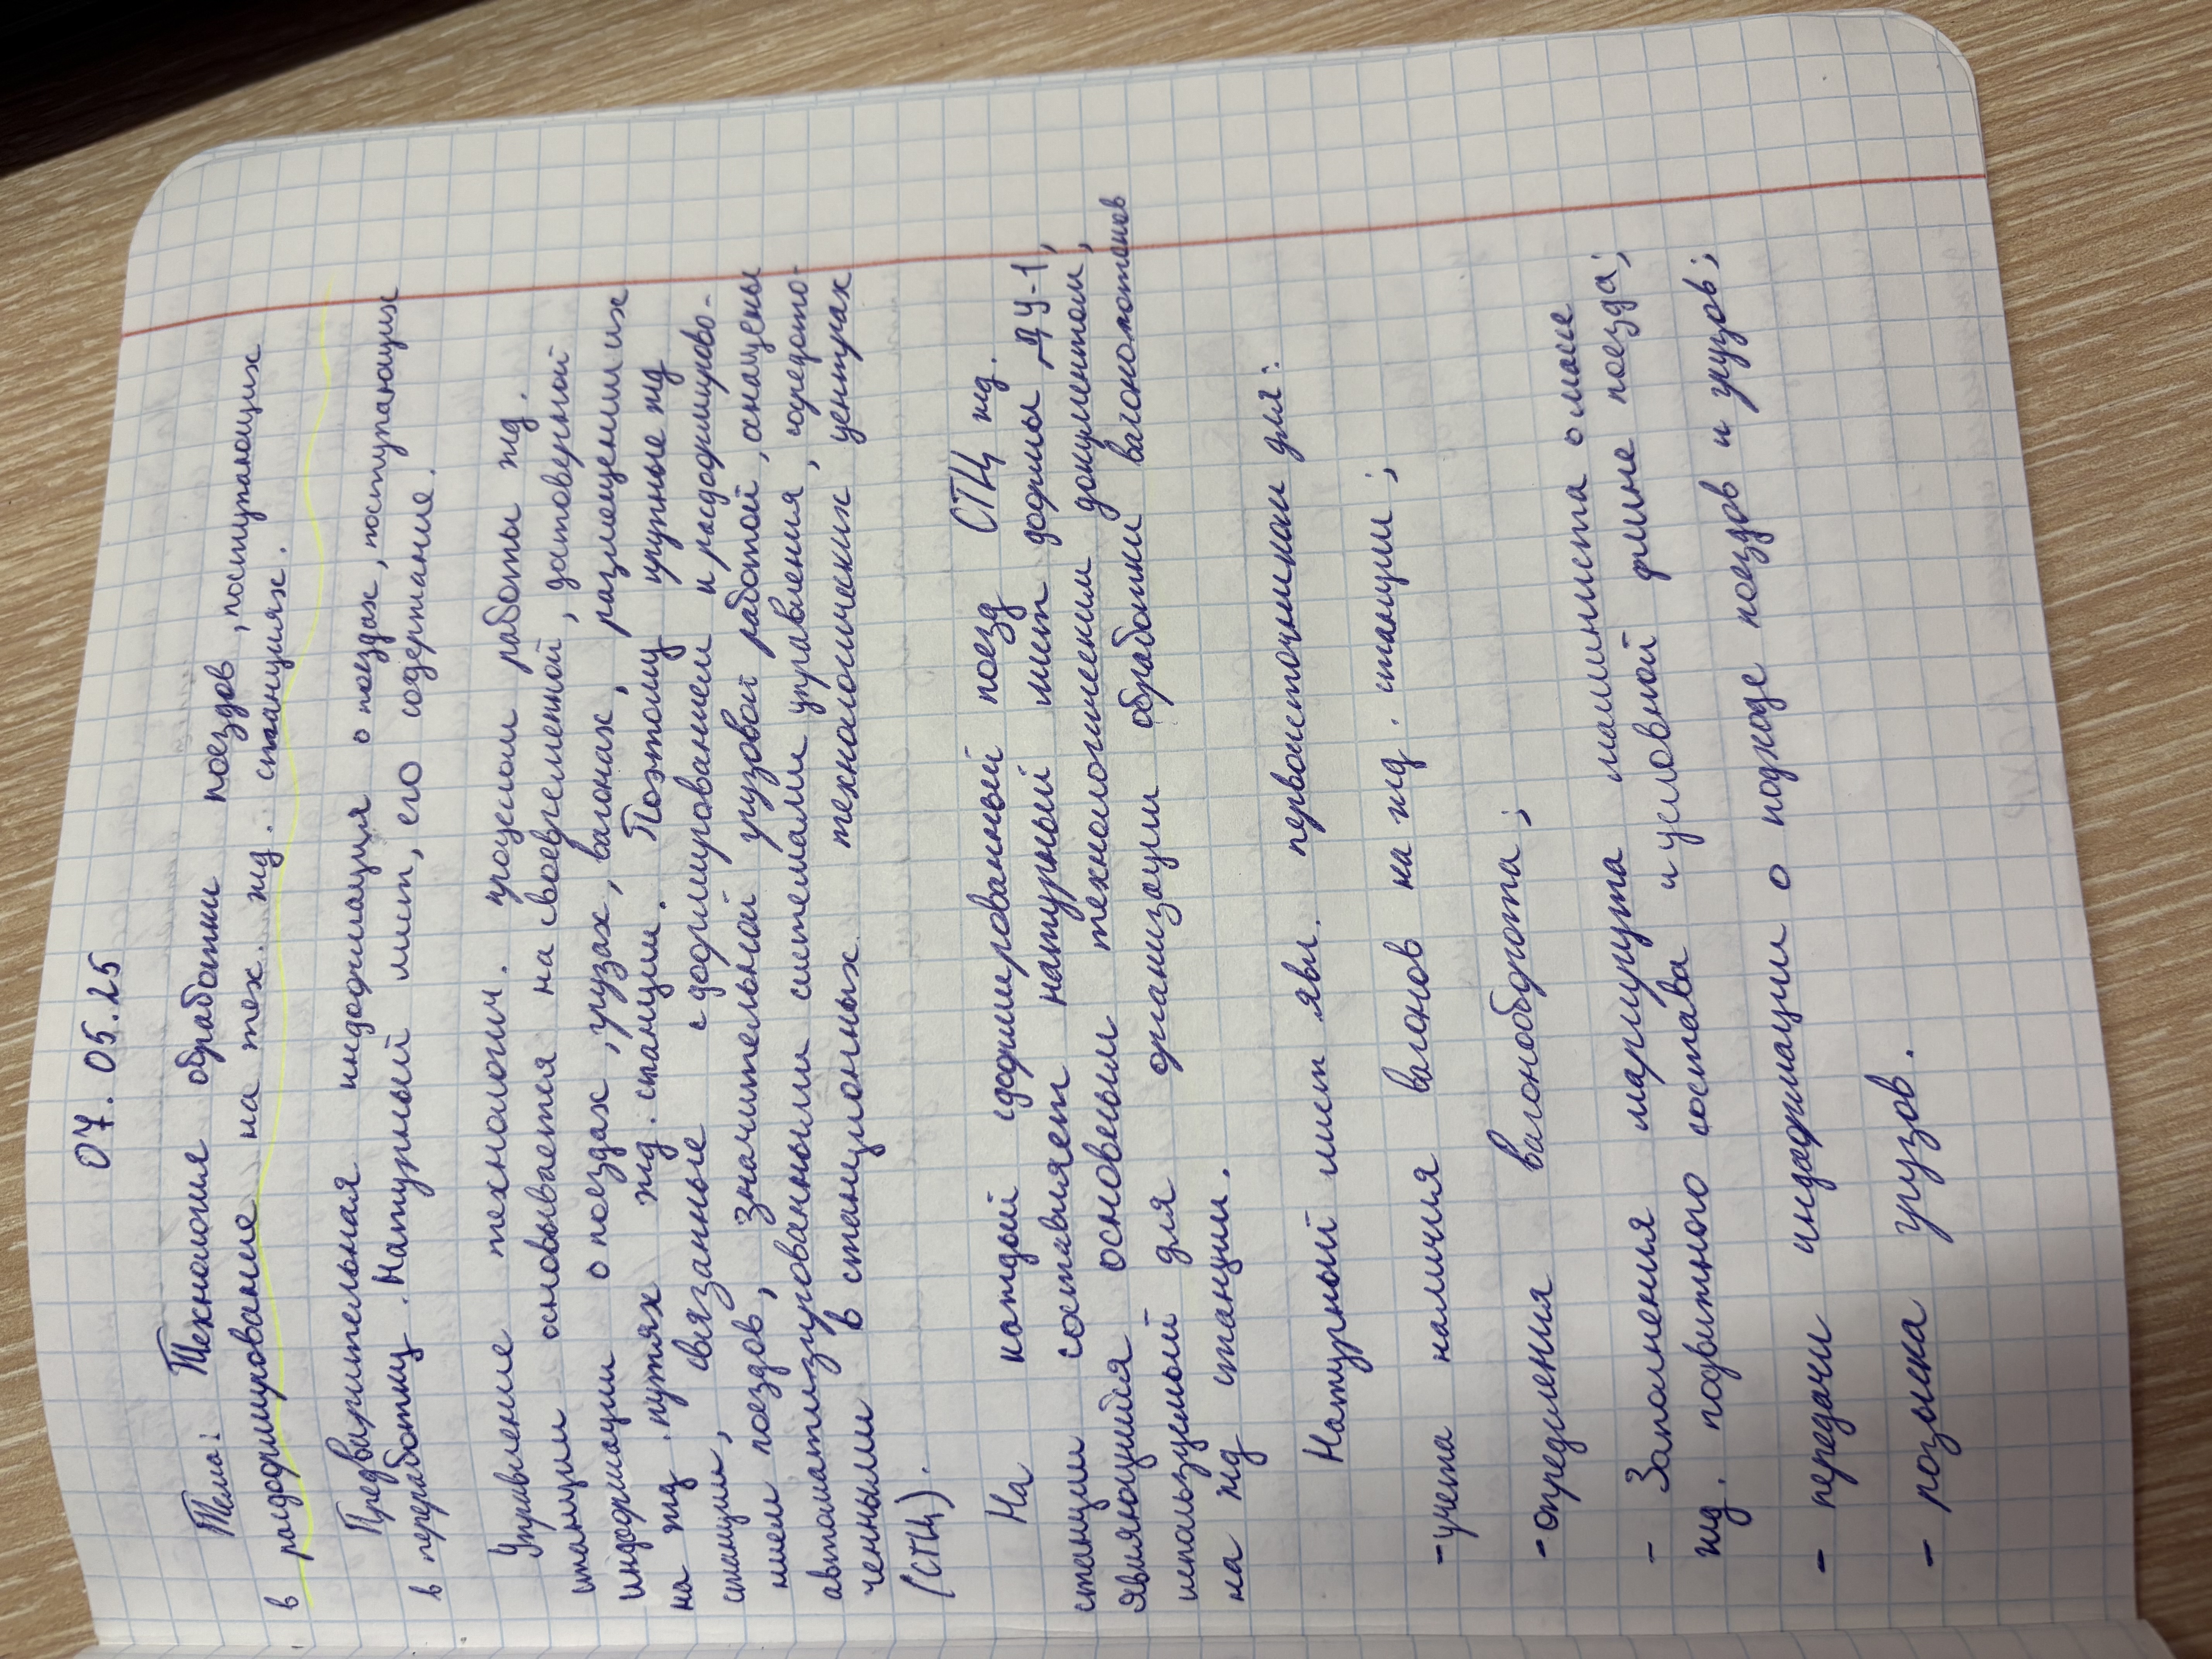 07.05.25
Тема: Технология обработки поездов, поступающих
в расформирование на тех. жд. станциях.
Предварительная информация о поездах, поступающих
в переработку. Натурный лист, его содержание.
Управление технологич. процессом работы жд.
станции основывается на своевременной, достоверной
информации о поездах, грузах, вагонах, размещении их
на жд. путях жд. станции. Поэтому крупные жд
станции, связанные с формированием и расформирово-
нием поездов, значительной грузовой работой, оснащены
автоматизированными системами управления, сосредото-
ченными в станционных технологических центрах
(СТЦ).
На каждый сформированный поезд СТЦ жд.
станции составляет натурный лист формы ДУ-1,
являющийся основным технологическим документом,
используемый для организации обработки вагонопотоков
на жд станции.
Натурный лист явл. первоисточником для:
- учета наличия вагонов на жд. станции;
- определения вагонооборота;
- Заполнения маршрута машиниста о массе
жд. подвижного состава и условной длине поезда;
- передачи информации о подходе поездов и грузов;
- розыска грузов.